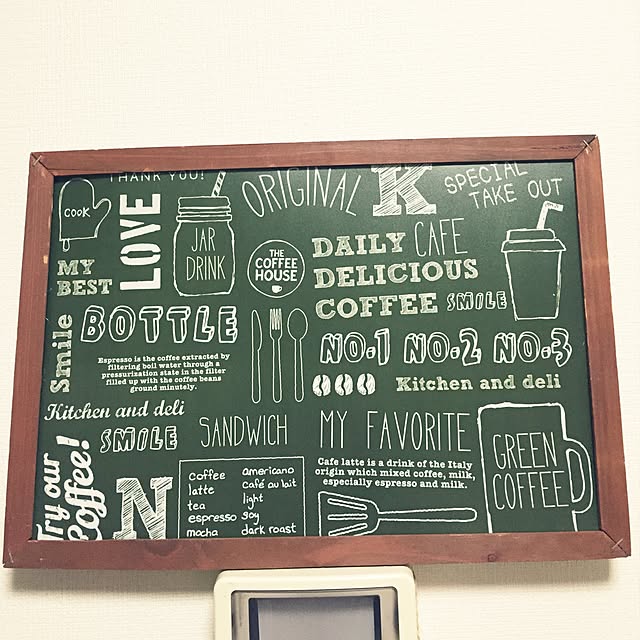 THANK YOU!
COOK
LOVE
MY
BEST
JAR
DRINK
ORIGINAL
K
SPECIAL
TAKE OUT
THE
COFFEE
HOUSE
DAILY CAFE
DELICIOUS
COFFEE SMILE
Smile
BOTTLE
Espresso is the coffee extracted by
filtering boil water through a
pressurization state in the filter
filled up with the coffee beans
ground minutely.
NO.1 NO.2 NO.3
Kitchen and deli
Kitchen and deli
SMILE
SANDWICH
MY FAVORITE
Cafe latte is a drink of the Italy
origin which mixed coffee, milk,
especially espresso and milk.
GREEN
COFFEE
Try our
Coffee!
N
coffee americano
latte café au lait
tea light
espresso soy
mocha dark roast